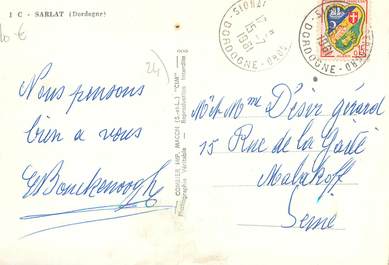 1 C - SARLAT (Dordogne)
10 €
24
Nous pensons
bien a vous
COMBIER IMP. MACON (S.-et-L.) "CIM"
Photographie Véritable - Reproduction Interdite
15-7
1961
DORDOGNE
1961
DORDOGNE
Mr et Mme Désir gérard
15 Rue de la Gaité
Malakoff
Seine